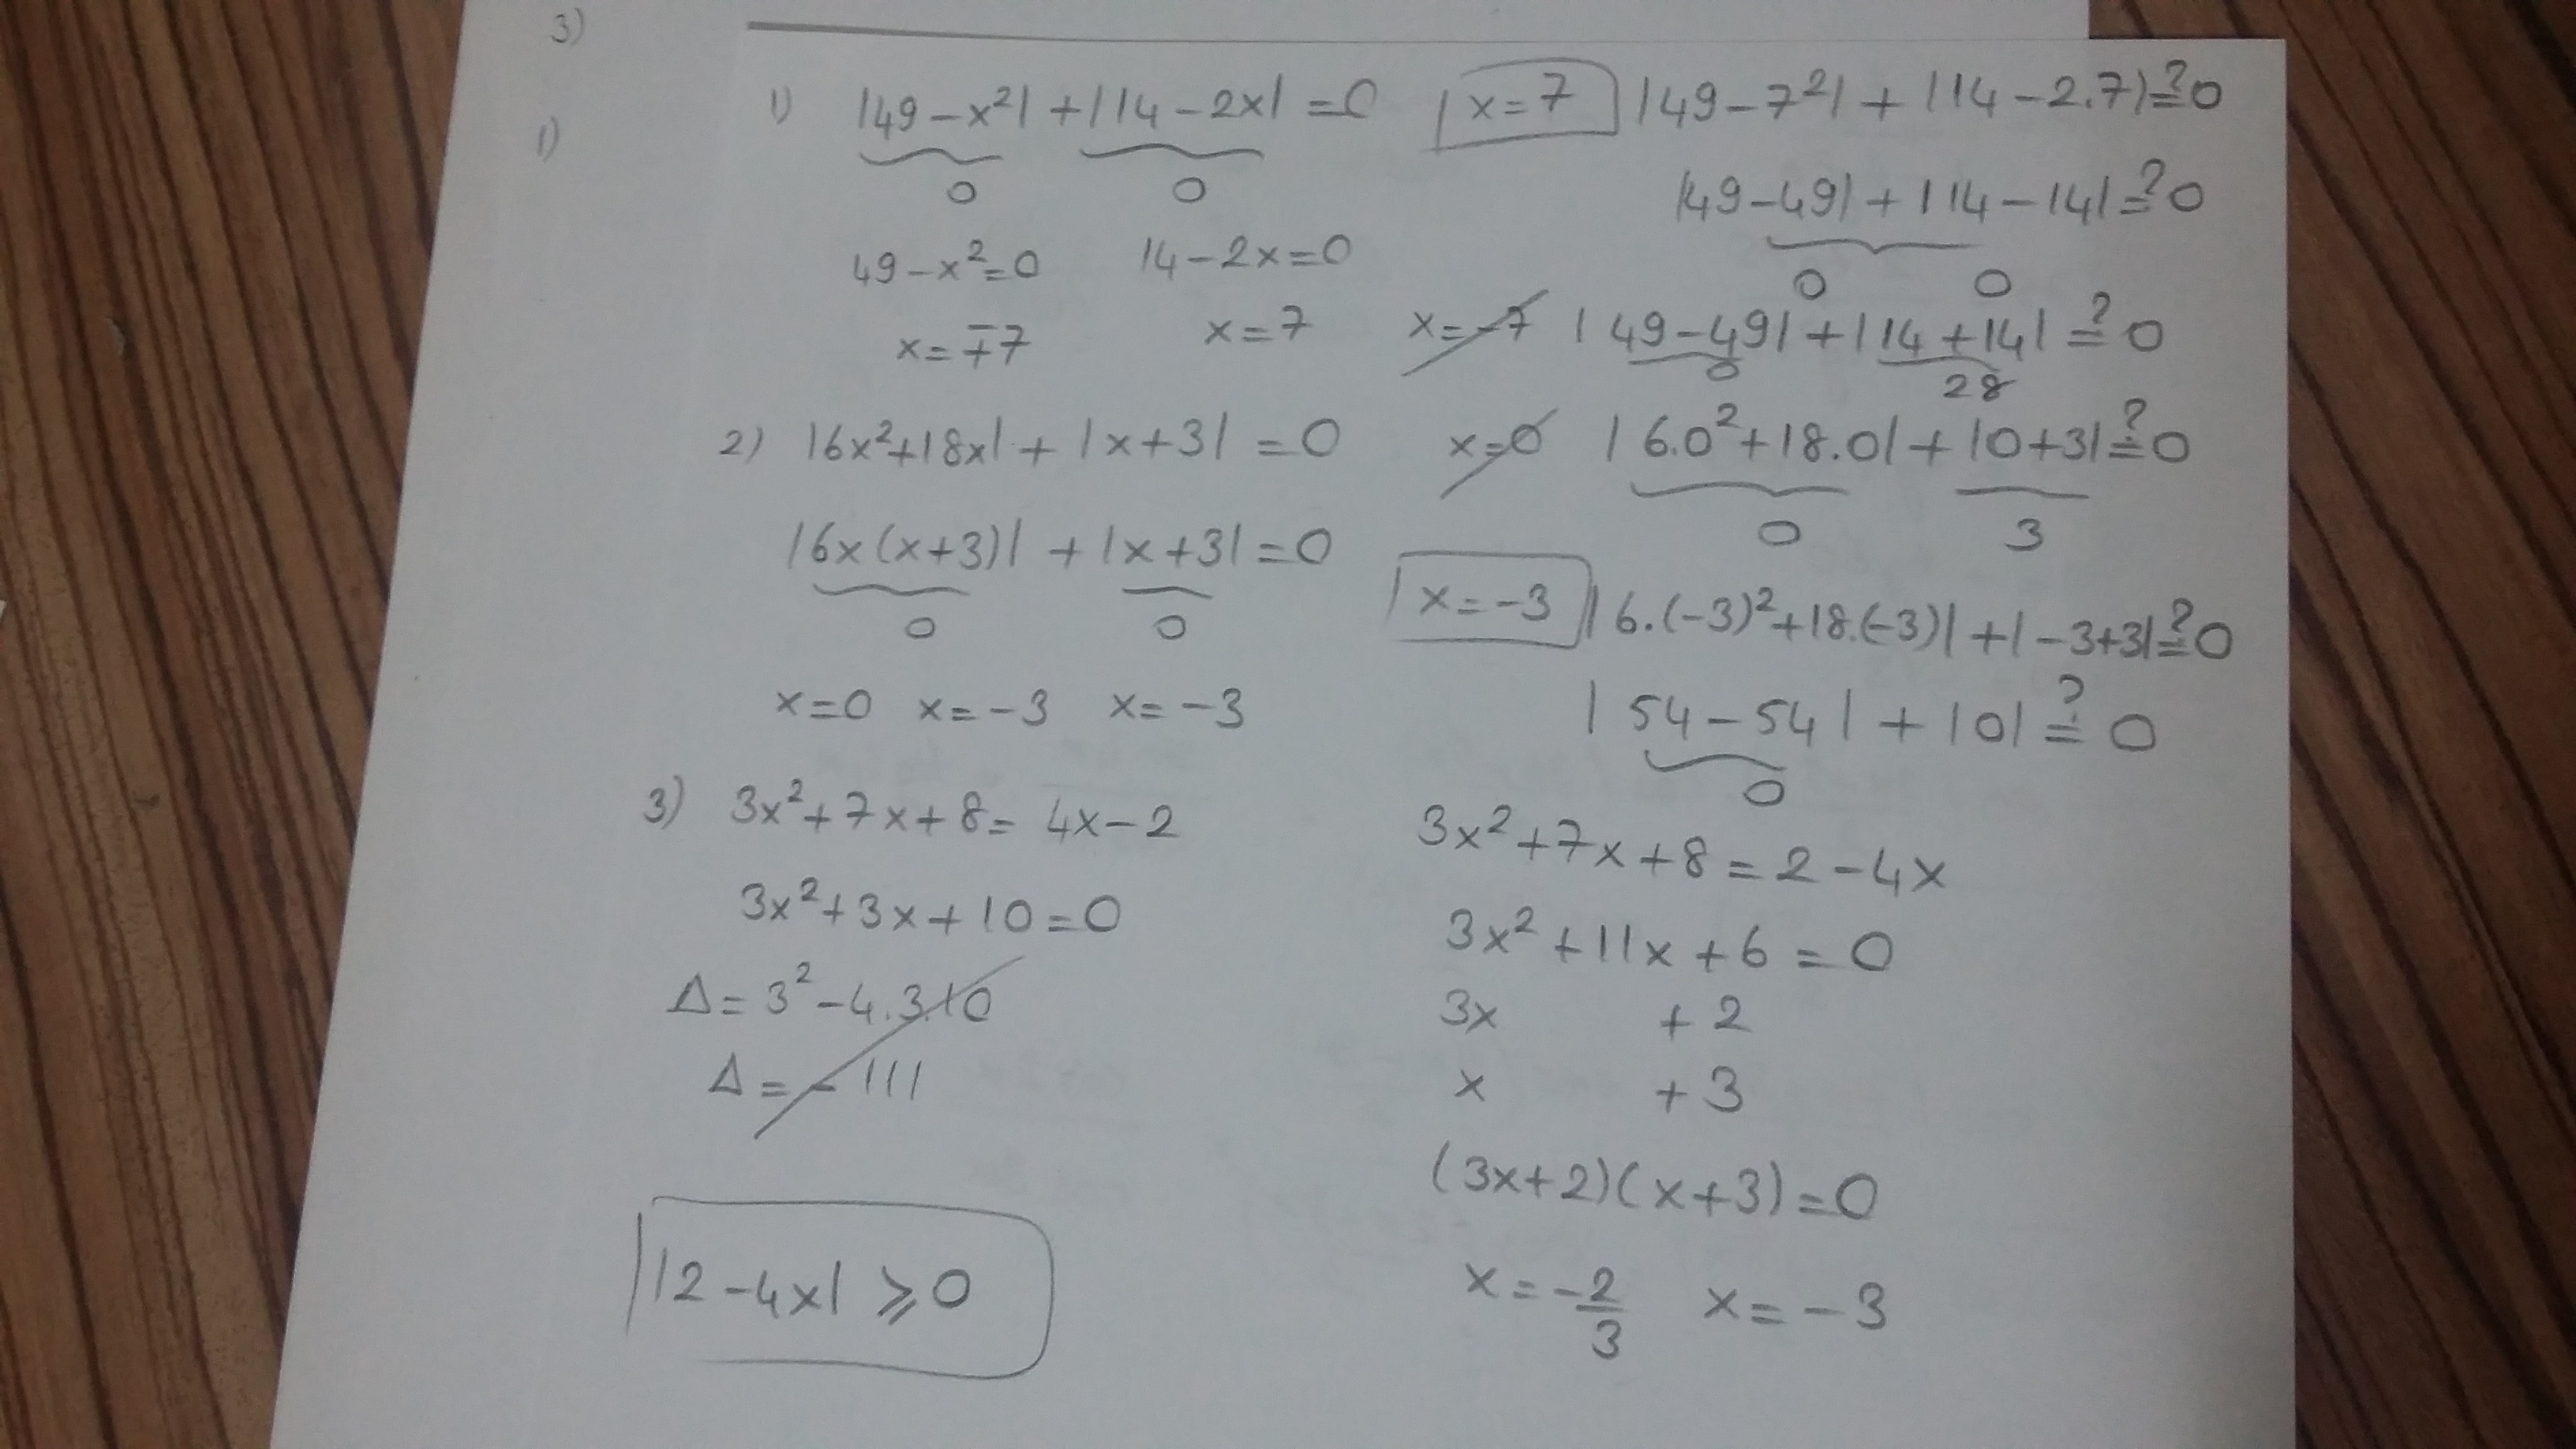 3)
1)
1) |49-x²| + |14-2x| = 0
0 0
49-x²=0 14-2x=0
x=∓7 x=7
x=7 |49-7²| + |14-2.7| ≟ 0
|49-49| + |14-14| ≟ 0
0 0
x=-7 |49-49| + |14+14| ≟ 0
0 28
2) |6x²+18x| + |x+3| = 0
|6x(x+3)| + |x+3| = 0
0 0
x=0 x=-3 x=-3
x=0 |6.0²+18.0| + |0+3| ≟ 0
0 3
x=-3 |6.(-3)²+18.(-3)| + |-3+3| ≟ 0
|54-54| + |0| ≟ 0
0
3) 3x²+7x+8 = 4x-2
3x²+3x+10=0
Δ=3²-4.3.10
Δ=-111
|2-4x| ⩾ 0
3x²+7x+8=2-4x
3x²+11x+6=0
3x +2
x +3
(3x+2)(x+3)=0
x=-2/3 x=-3